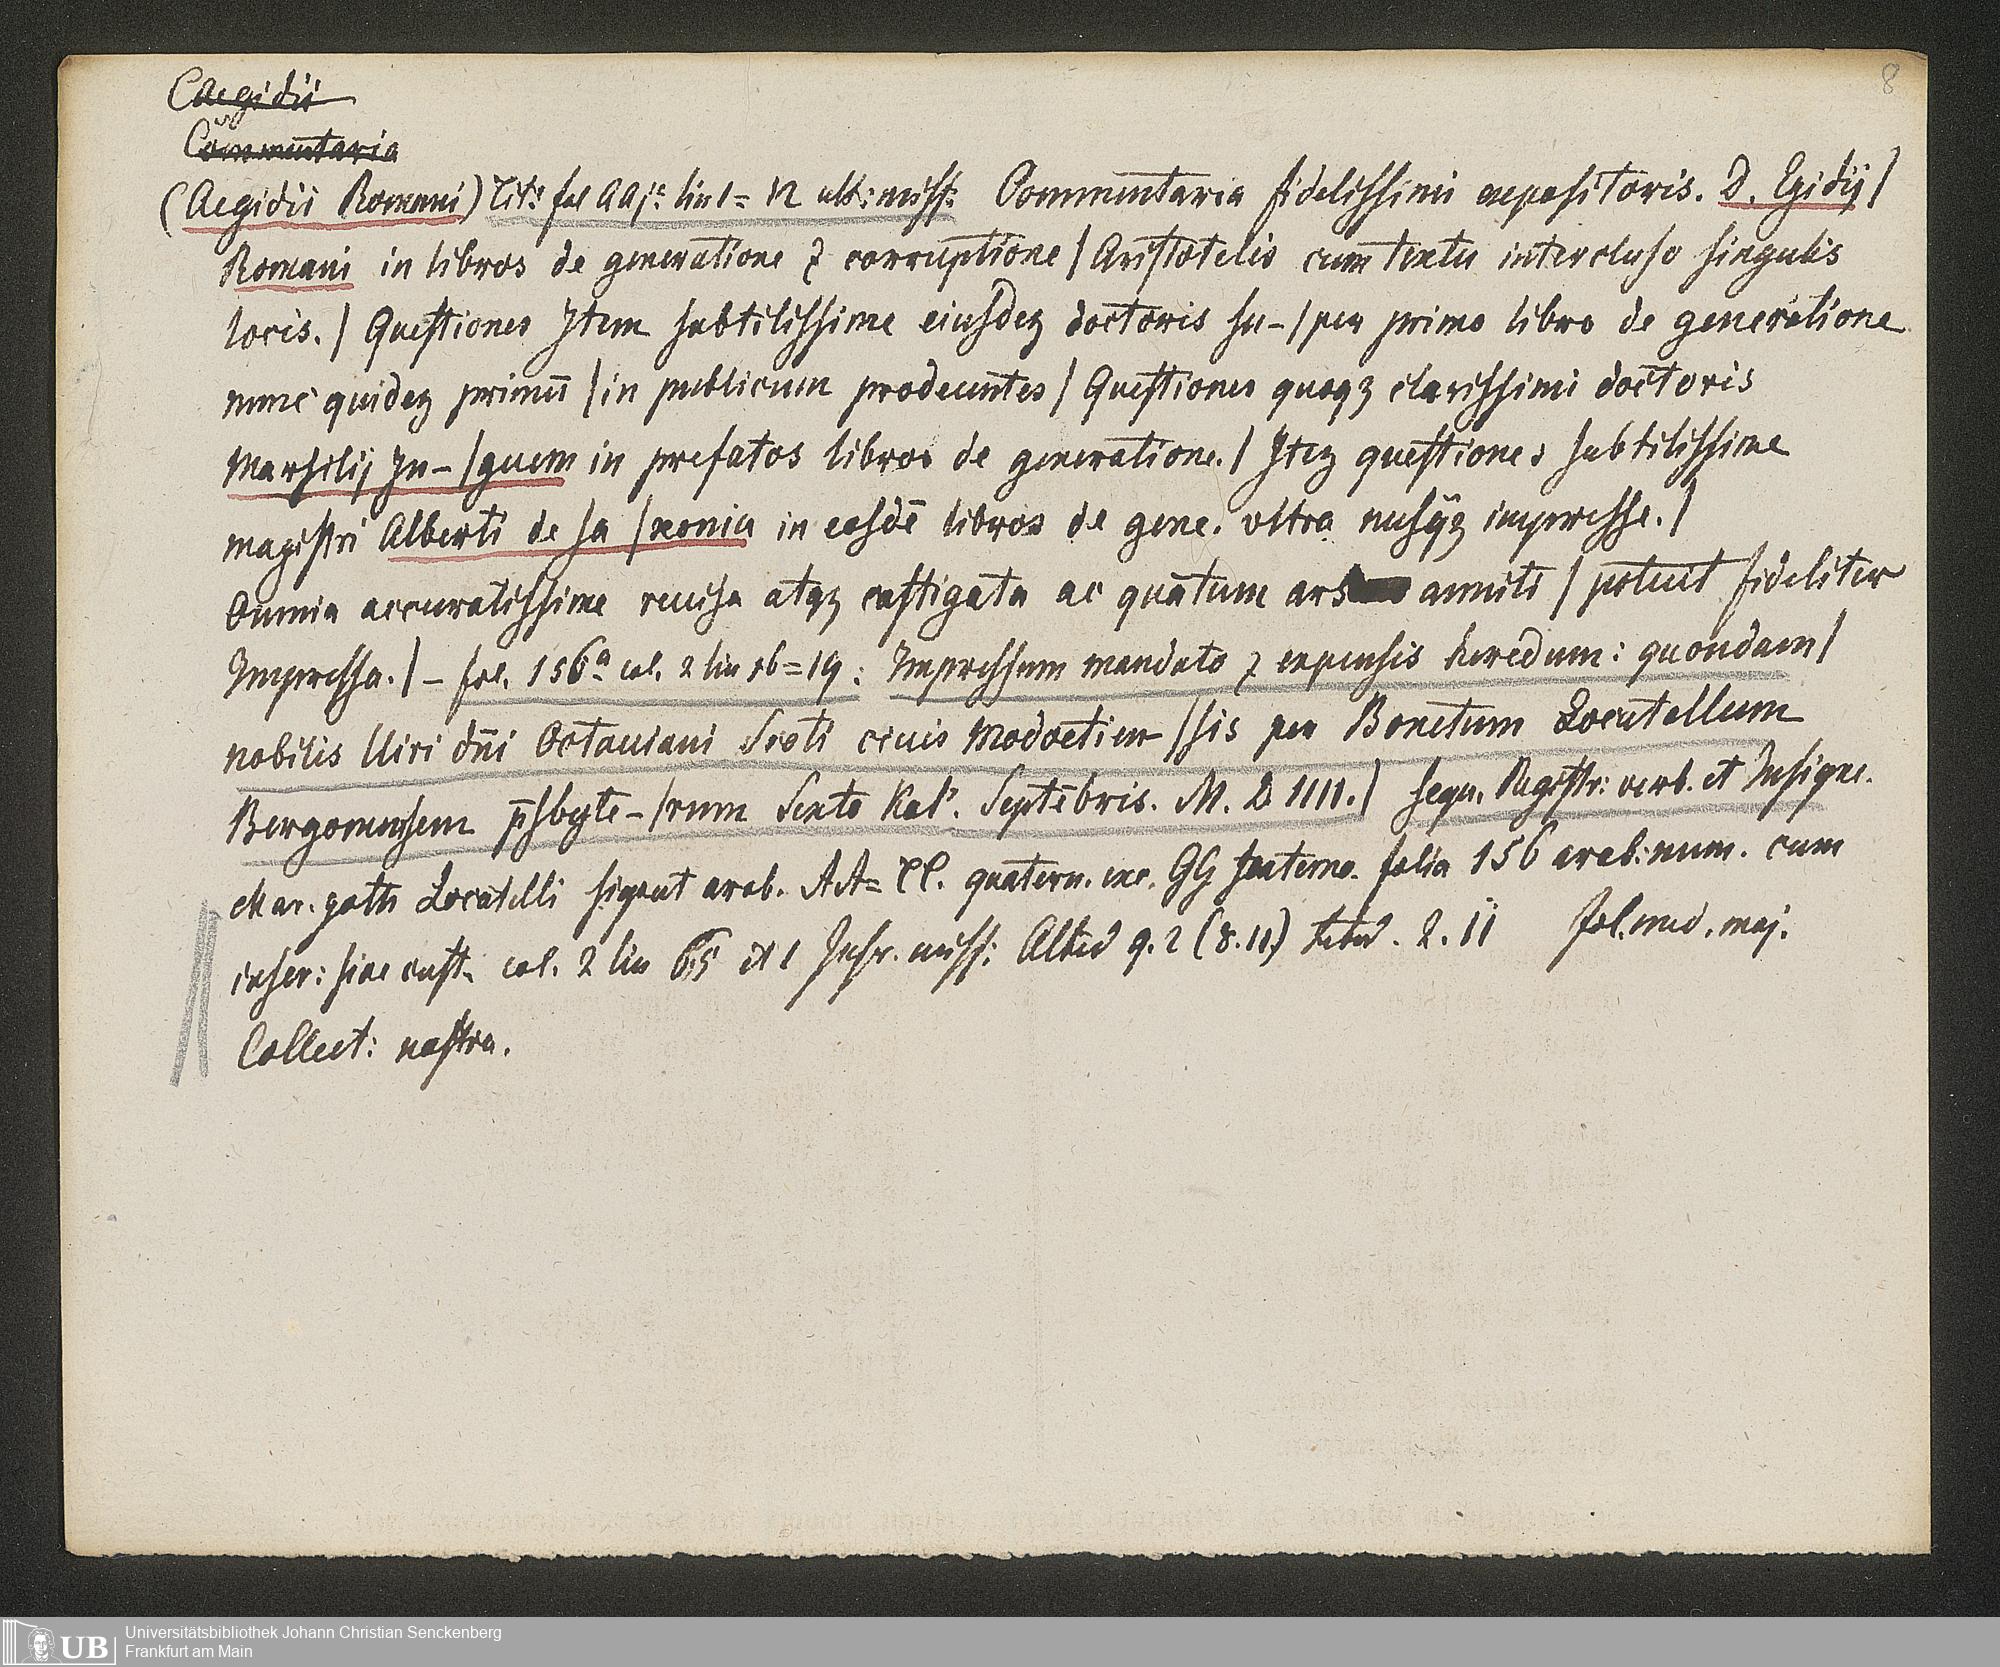 8
Caegidii
Commentaria
(Aegidii Romani) Tit: fol AA j: lin 1= 12 alt: miss: Commentaria fidelissimi expositoris. D. Egidij /
Romani in libros de generatione ⁊ corruptione / Aristotelis cum textu intercluso singulis
locis. / Questiones Item subtilissime eiusdeʒ doctoris su- / per primo libro de generatione
nunc quideʒ primū / in publicum prodeuntes / Questiones quoqʒ clarissimi doctoris
Marsilij In- / guem in prefatos libros de generatione. / Iteʒ questiones subtilissime
magistri Alberti de sa / xonia in eosdē libros de gene. vltra nusq̃ʒ impresse. /
Omnia accuratissime reuisa atqʒ castigata ac quātum ars anniti / potuit fideliter
Impressa. / – fol. 156ª col. 2 lin 16=19: Impressum mandato ⁊ expensis heredum: quondam /
nobilis Uiri dñi Octauiani Scoti ciuis Modoetien / sis per Bonetum Locatellum
Bergomensem p̄sbyte- / rum Sexto Kal'. Septēbris. M. D. 1111. / sequ. Registr: verb. et Insigne.
Char. goth Locatelli signat arab. AA= quatern. exc. GG folia 156 arab: num. cum
inser: sine cust. col. 2 lin 65 et miss: fol. med. maj.
Collect: nostra.
UB Universitätsbibliothek Johann Christian Senckenberg
Frankfurt am Main